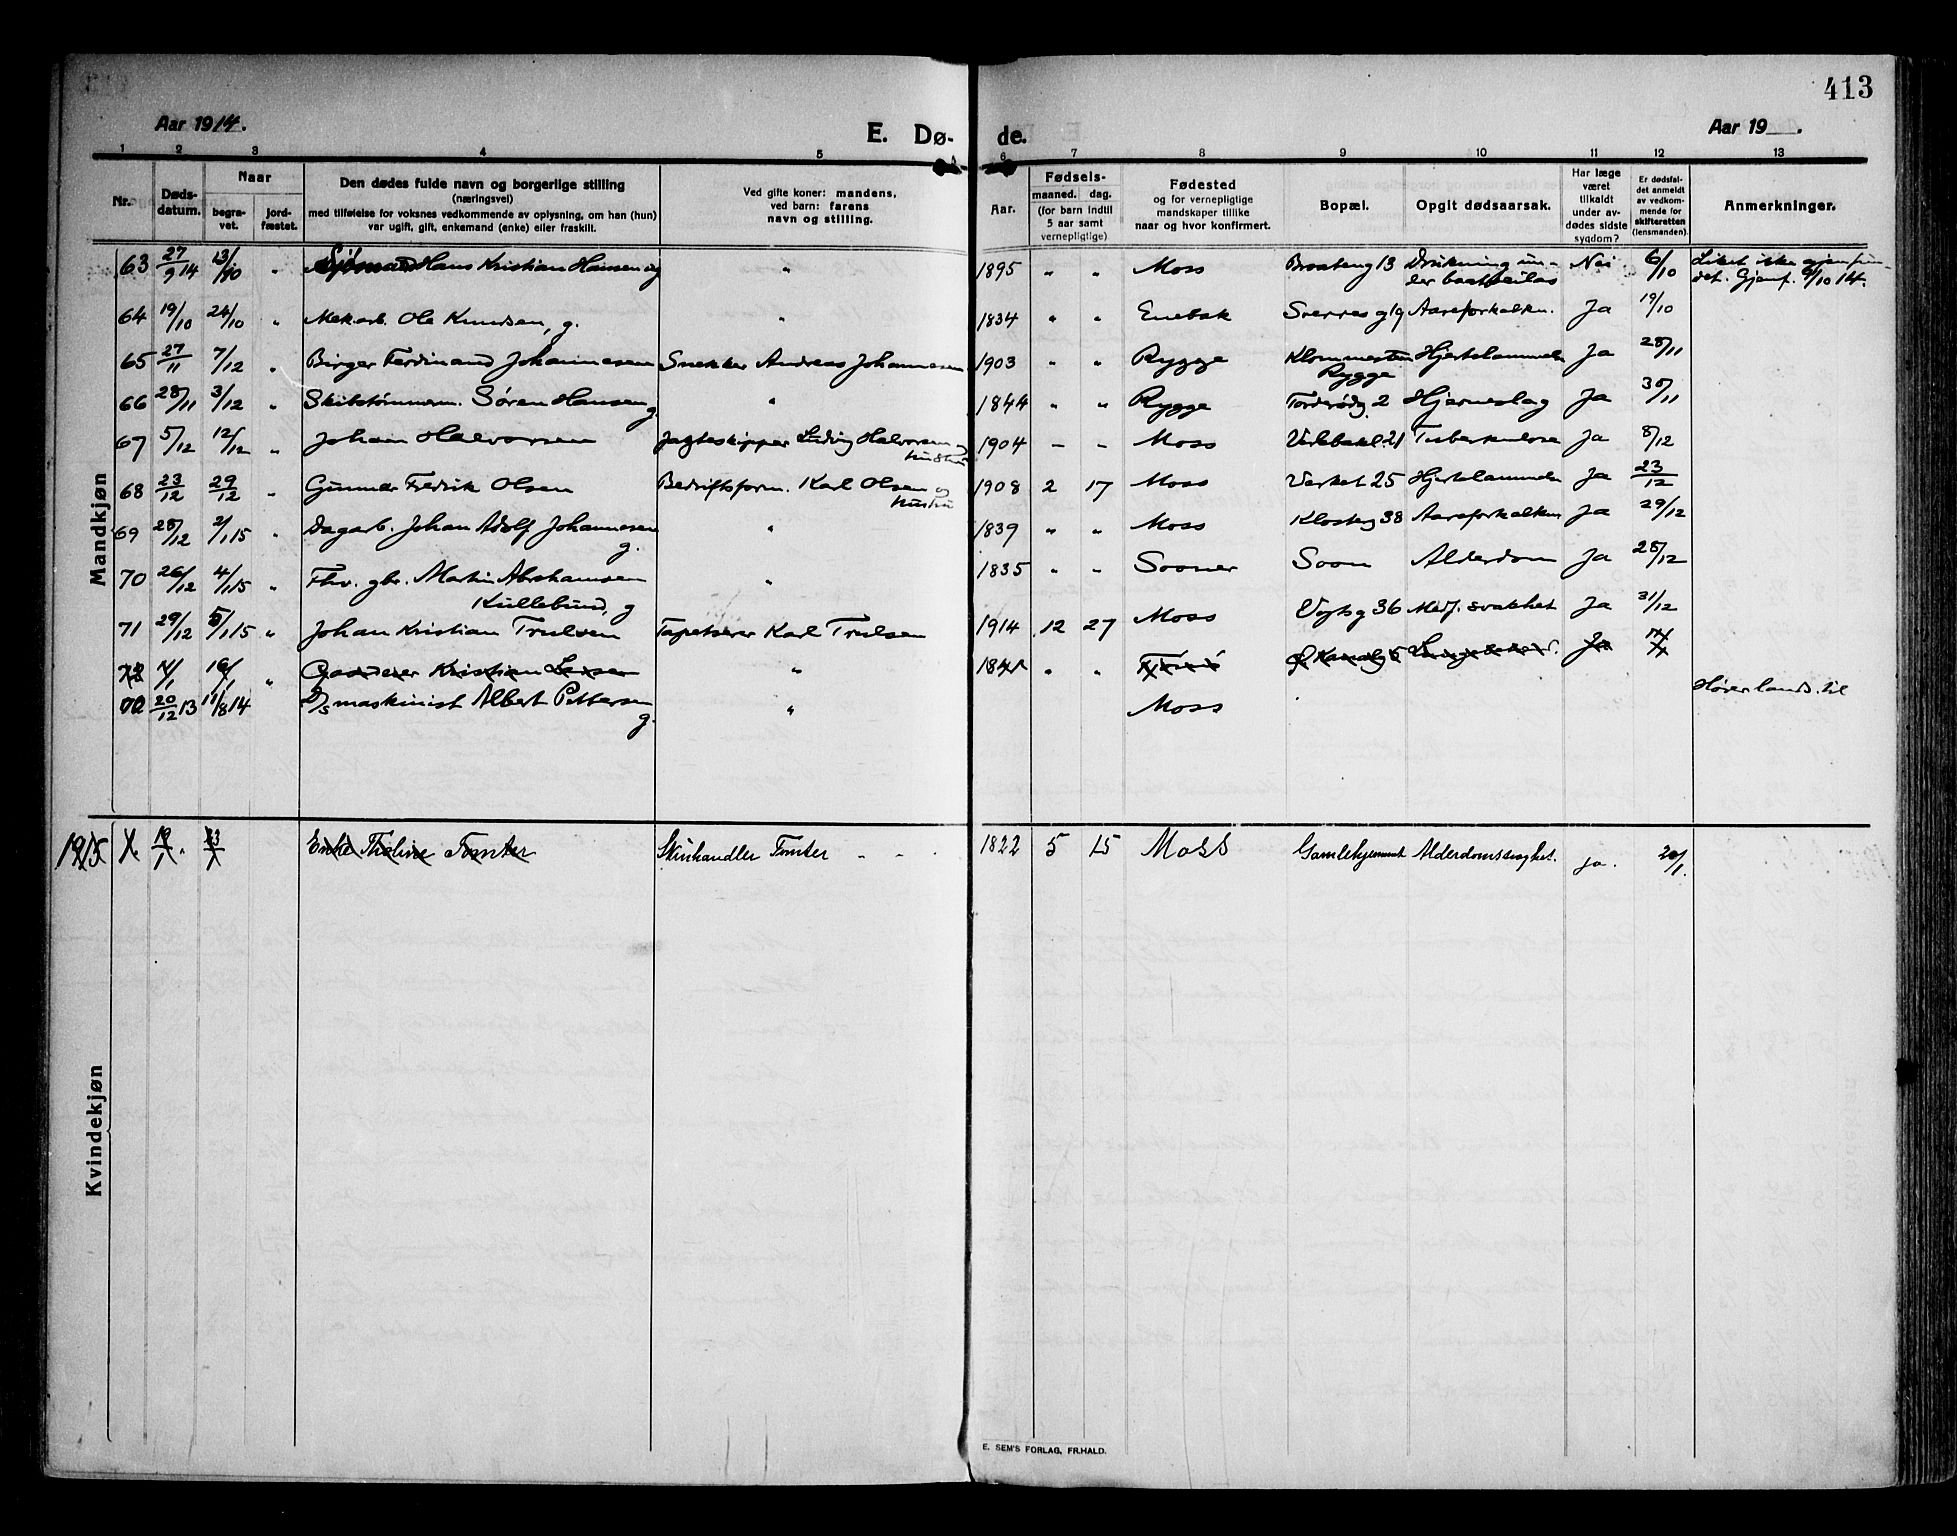 413
Aar 1914.
E. Dø- de.
Aar 19 .
1 2 3 4 5 6 7 8 9 10 11 12 13
Nr.
Døds-
datum.
Naar
begra-
vet.
jord-
fæstet.
Den dødes fulde navn og borgerlige stilling
(næringsvei)
med tilføielse for voksnes vedkommende av oplysning, om han (hun)
var ugift, gift, enkemand (enke) eller fraskilt.
Ved gifte koner: mandens,
ved barn: farens
navn og stilling.
Aar.
Fødsels-
maaned. dag.
(for barn indtil
5 aar samt
vernepligtige)
Fødested
og for vernepligtige
mandskaper tillike
naar og hvor konfirmert.
Bopæl.
Opgit dødsaarsak.
Har læge
været
tilkaldt
under av-
dødes sidste
sygdom?
Er dødsfal-
det anmeldt
av vedkom-
mende for
skifteretten
(lensmanden).
Anmerkninger.
Mandkjøn
63 27/9 14 13/10 " Sjømand Hans Kristian Hansen ug " 1895 " " Moss Braateng 13 Drukning un- Nei 6/10 Liket ikke gjenfun-
der baatseilas
det. Gjenf. 9/10 14.
64 19/10 24/10 " Mek. arb. Ole Knudsen, g. " 1834 " " Enebak Sverres g 19 Aareforkalkn. Ja 19/10
65 27/11 7/12 " Birger Ferdinand Johannesen Snekker Andreas Johannesen 1903 " " Rygge Klommesten Hjertelammelse Ja 28/11
Rygge
66 28/11 3/12 " Skibstømmerm. Søren Hansen g. " 1844 " " Rygge Torderødg. 2 Hjerneslag Ja 30/11
67 5/12 12/12 " Johan Halvorsen Jagteskipper Ludvig Halvorsen og 1904 - - Moss Verlebakk. 21 Tuberkulose Ja 8/12
hustru
68 23/12 29/12 " Gunnar Fredrik Olsen Bedriftsform. Karl Olsen og 1908 2 17 Moss Verket 25 Hjertelammelse Ja 23/12
hustru
69 28/12 2/1 15 " Dagarb. Johan Adolf Johannesen " 1839 " " Moss Klosterg 38 Aareforkalkn Ja 29/12
g.
70 26/12 4/1 15 " Fhv. gbr. Martin Abrahamsen " 1835 " " Sooner Soon Alderdom Ja 28/12
Kullebund, g
71 29/12 5/1 15 " Johan Kristian Trulsen Tapetserer Karl Trulsen 1914 12 27 Moss Vogtsg 36 Medf. svakhet Ja 31/12
Kristian Larsen " " " Kanalg 5 Ja
72 20/12 13 11/8 14 D/s maskinist Albert Pettersen " Moss Hører lands. til
g.
Kvindekjøn
1915 1. 19/1 23/1 Enke Tholine Tomter Skinhandler Tomter - - 1822 5 15 Moss Gamlehjemmet Alderdomssvaghet. ja. 20/1.
E. SEM'S FORLAG, FR.HALD.